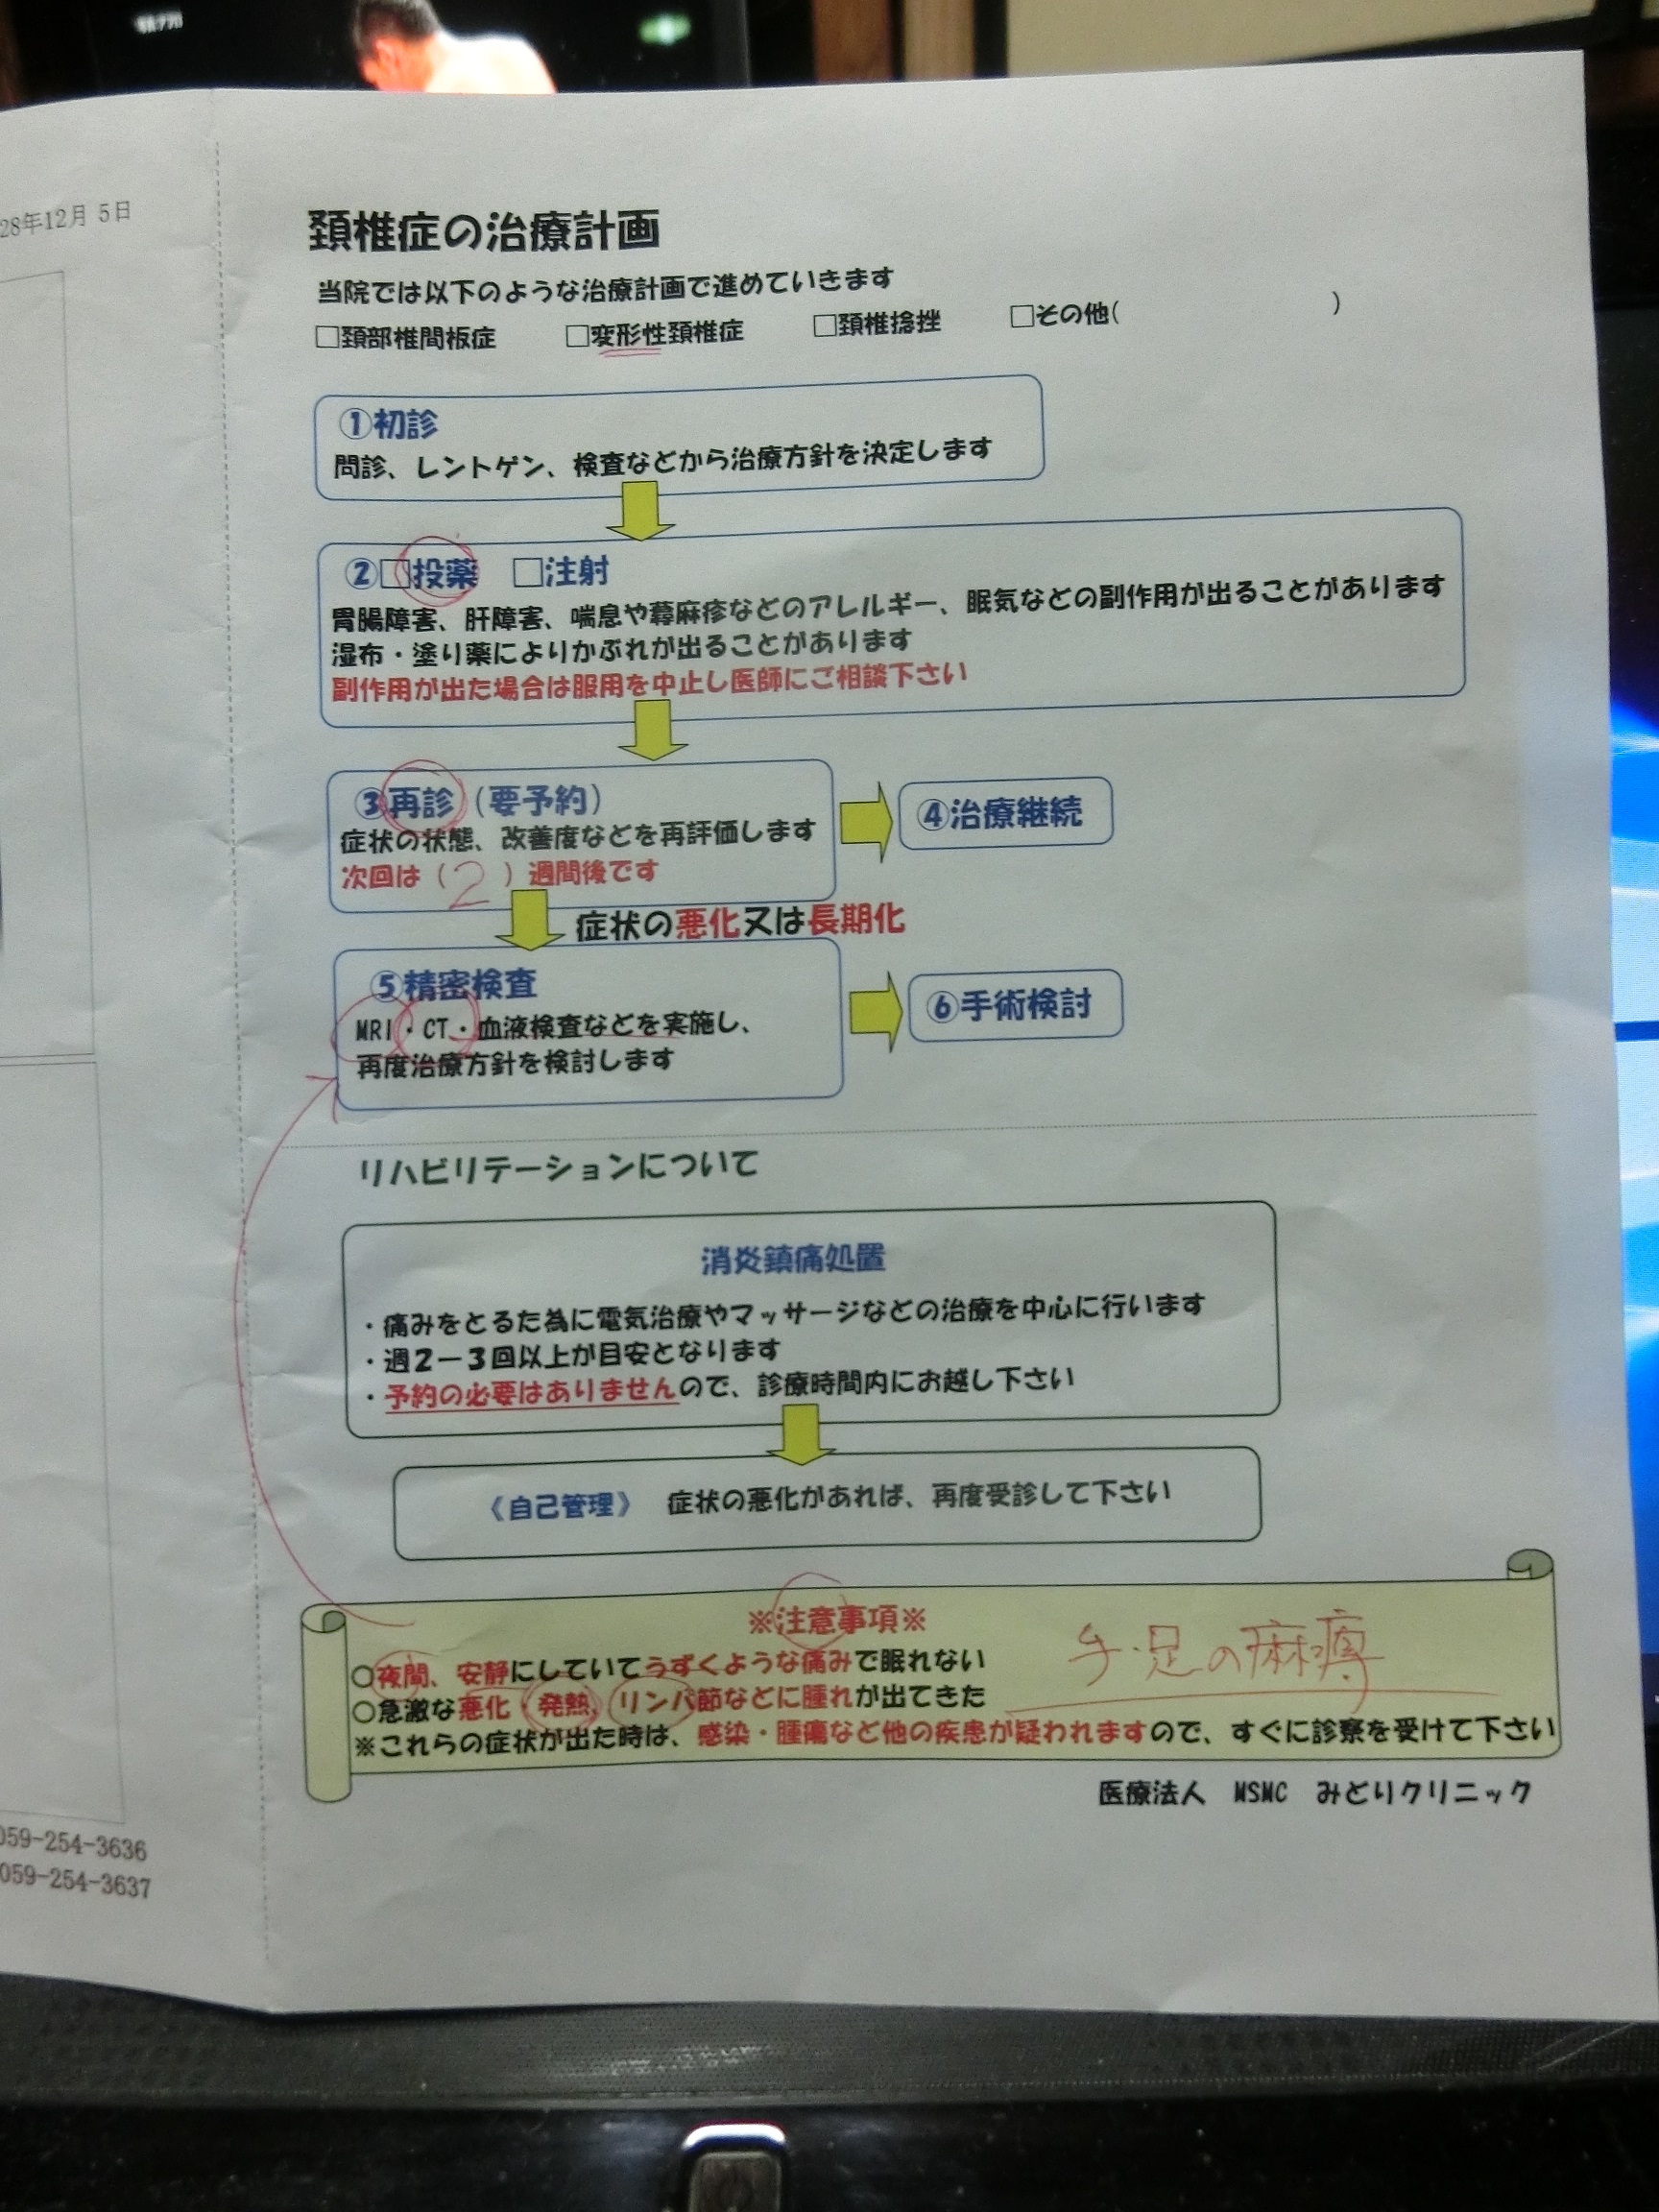 28年12月 5日
頚椎症の治療計画
当院では以下のような治療計画で進めていきます
□頚部椎間板症 □変形性頚椎症 □頚椎捻挫 □その他( )
①初診
問診、レントゲン、検査などから治療方針を決定します
②□投薬 □注射
胃腸障害、肝障害、喘息や蕁麻疹などのアレルギー、眠気などの副作用が出ることがあります
湿布・塗り薬によりかぶれが出ることがあります
副作用が出た場合は服用を中止し医師にご相談下さい
③再診(要予約)
症状の状態、改善度などを再評価します
次回は(2)週間後です
④治療継続
症状の悪化又は長期化
⑤精密検査
MRI・CT・血液検査などを実施し、
再度治療方針を検討します
⑥手術検討
リハビリテーションについて
消炎鎮痛処置
・痛みをとるた為に電気治療やマッサージなどの治療を中心に行います
・週2－3回以上が目安となります
・予約の必要はありませんので、診療時間内にお越し下さい
《自己管理》 症状の悪化があれば、再度受診して下さい
※注意事項※
○夜間、安静にしていてうずくような痛みで眠れない
手・足の麻痺
○急激な悪化、発熱、リンパ節などに腫れが出てきた
※これらの症状が出た時は、感染・腫瘍など他の疾患が疑われますので、すぐに診察を受けて下さい
医療法人 MSMC みどりクリニック
059-254-3636
059-254-3637